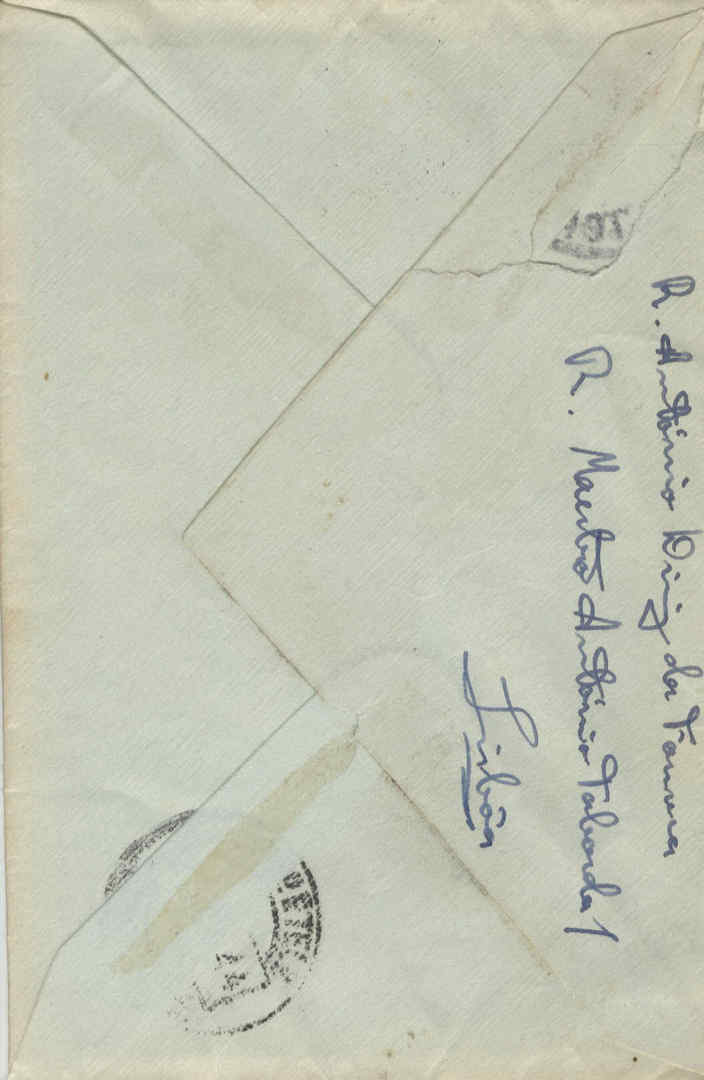 R. António Diniz da Fonseca
R. Maestro António Taborda 1
Lisbôa